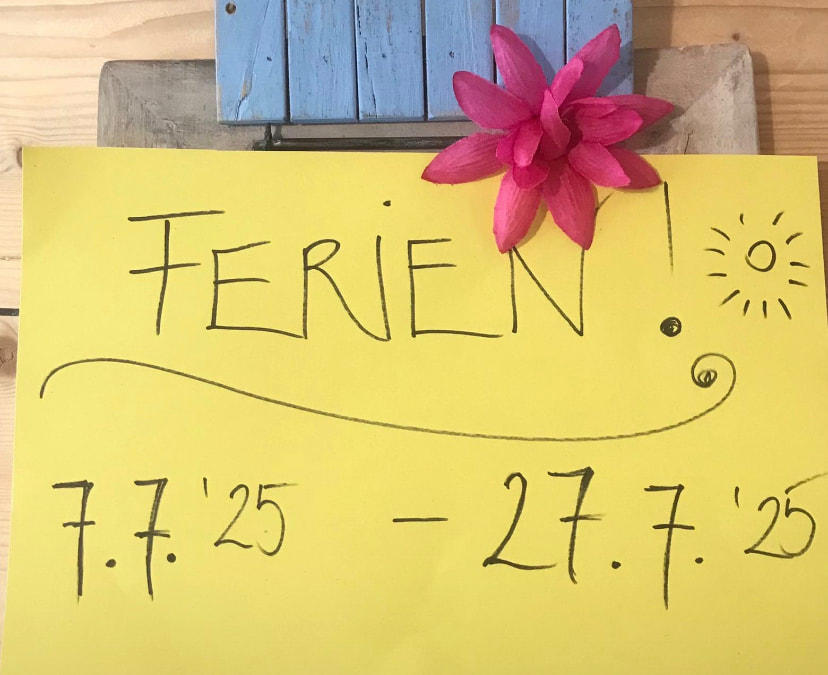 FERiEN!
7.7.'25 – 27.7.'25